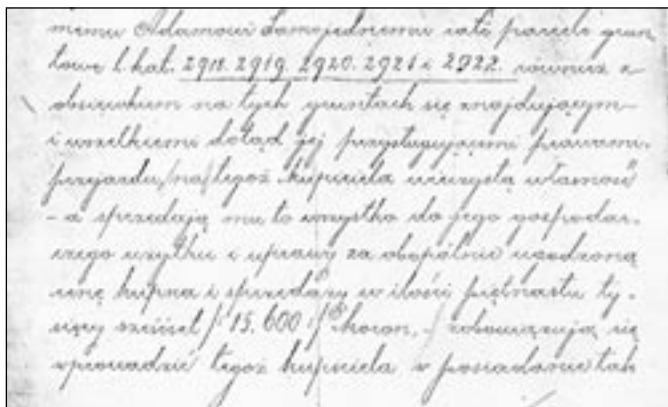 memu Adamowi Samojednemu całe parcele grun
towe l. kat. 2918. 2919. 2920. 2921 i 2922. również z
obsiewkum na tych gruntach się znajdującym
i wszelkiemi dotąd jej przysługującemi prawami
przejazdu, na tegoż kupiciela wieczystą własność
- a sprzedają mu to wszystko do jego gospodar-
czego użytku i uprawy za obopólnie ugodzoną
cenę kupna i sprzedaży w ilości piętnastu ty-
sięcy sześćset /: 15.600 :/ koron, zobowiązują się
wprowadzić tegoż kupiciela w posiadanie tak